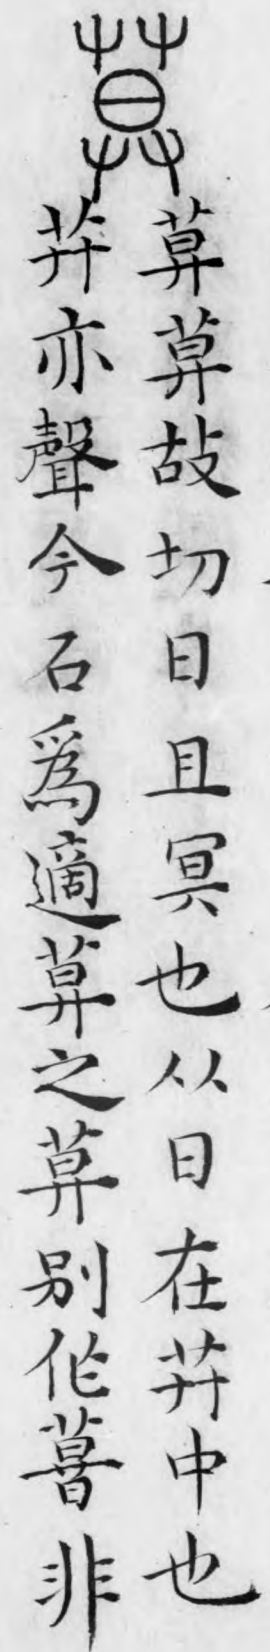 莫
𦱤𦱤故切日且冥也从日在茻中也
茻亦聲今石爲適𦱤之𦱤别作暮非